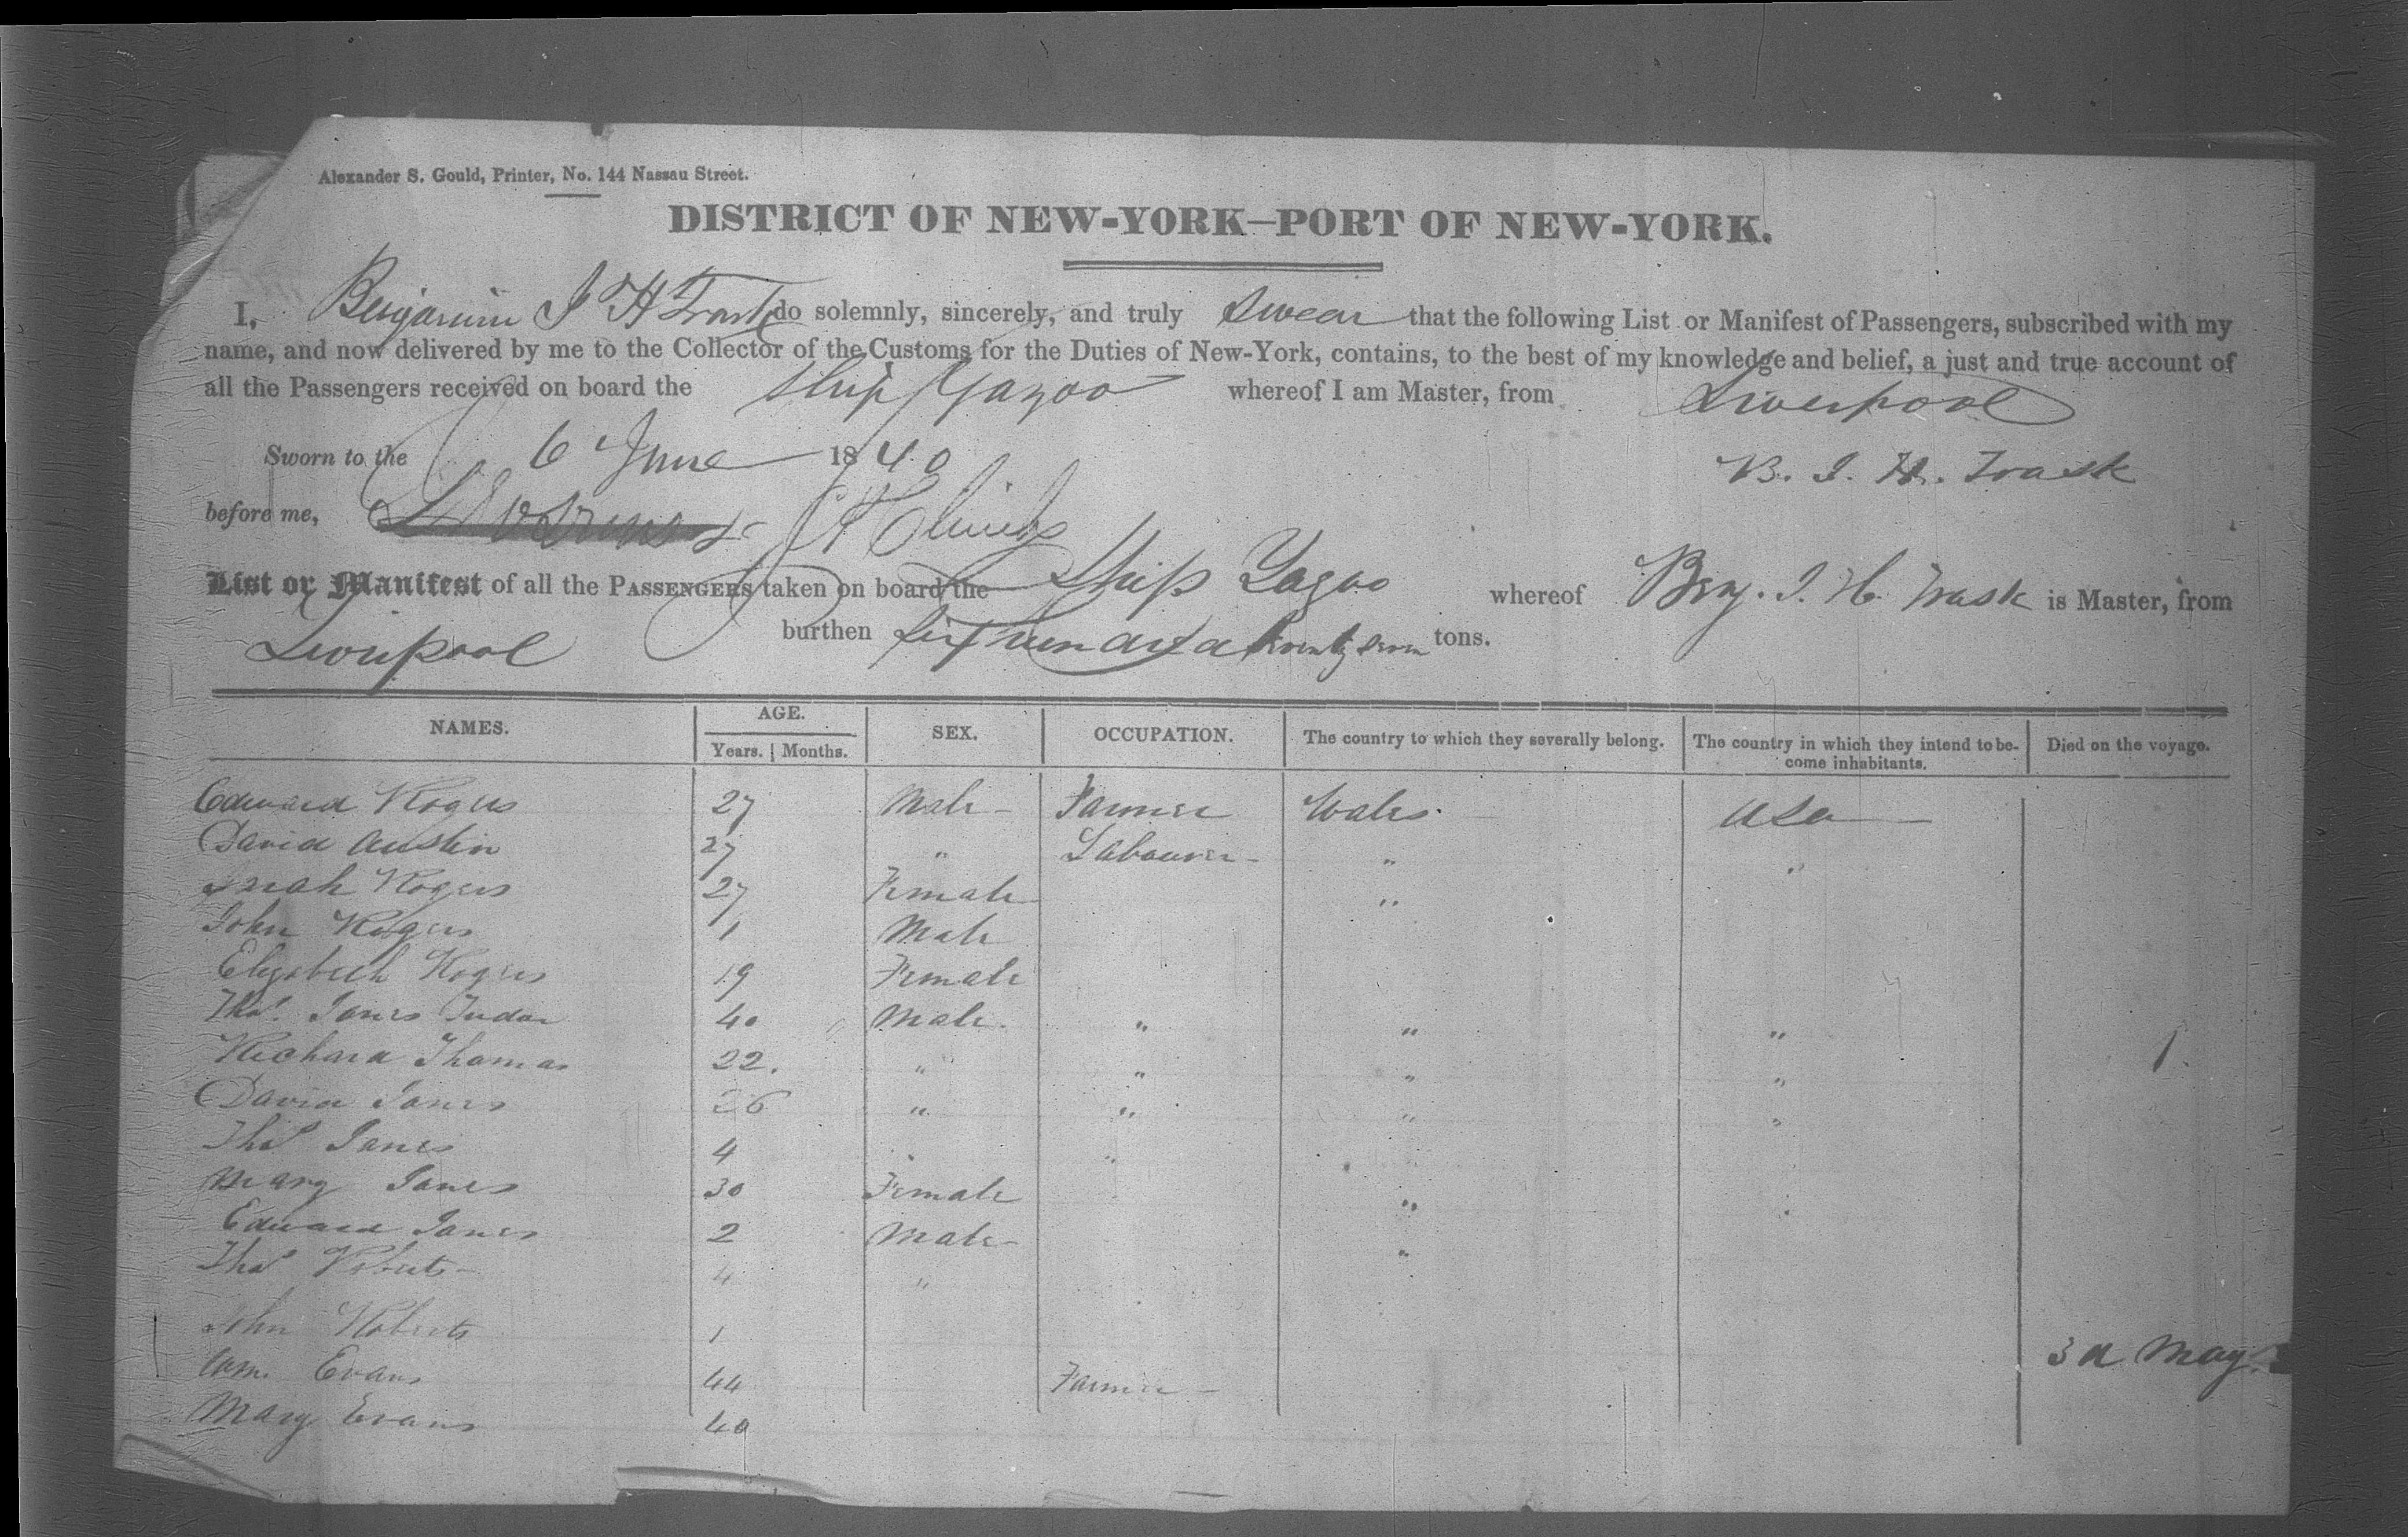 Alexander S. Gould, Printer, No. 144 Nassau Street.
DISTRICT OF NEW-YORK—PORT OF NEW-YORK.
I, Benjamin I H Trask do solemnly, sincerely, and truly swear that the following List or Manifest of Passengers, subscribed with my
name, and now delivered by me to the Collector of the Customs for the Duties of New-York, contains, to the best of my knowledge and belief, a just and true account of
all the Passengers received on board the Ship Yazoo whereof I am Master, from Liverpool
Sworn to the 6 June 1840 B. I. H. Trask
before me,
List or Manifest of all the PASSENGERS taken on board the Ship Yazoo whereof Benj. I. H. Trask is Master, from
Liverpool burthen seven tons.
NAMES. AGE. Years. Months. SEX. OCCUPATION. The country to which they severally belong. The country in which they intend to become inhabitants. Died on the voyage.
Edward Rogers 27 Male Farmer Wales USA
David Austin 27 " Labourer " "
Rogers 27 Female "
John Rogers 1 Male
Elizabeth Rogers 19 Female
Thos. Jones Tudor 40 " Male " " "
Richard Thomas 22. " " " " 1
David Jones 26 " " " "
Thos Jones 4 " "
Mary Jones 30 Female " "
Edward Jones 2 Male "
Thos Roberts 4 "
John Roberts 1 3d May
Wm. Evans 44 Farmer
Mary Evans 40